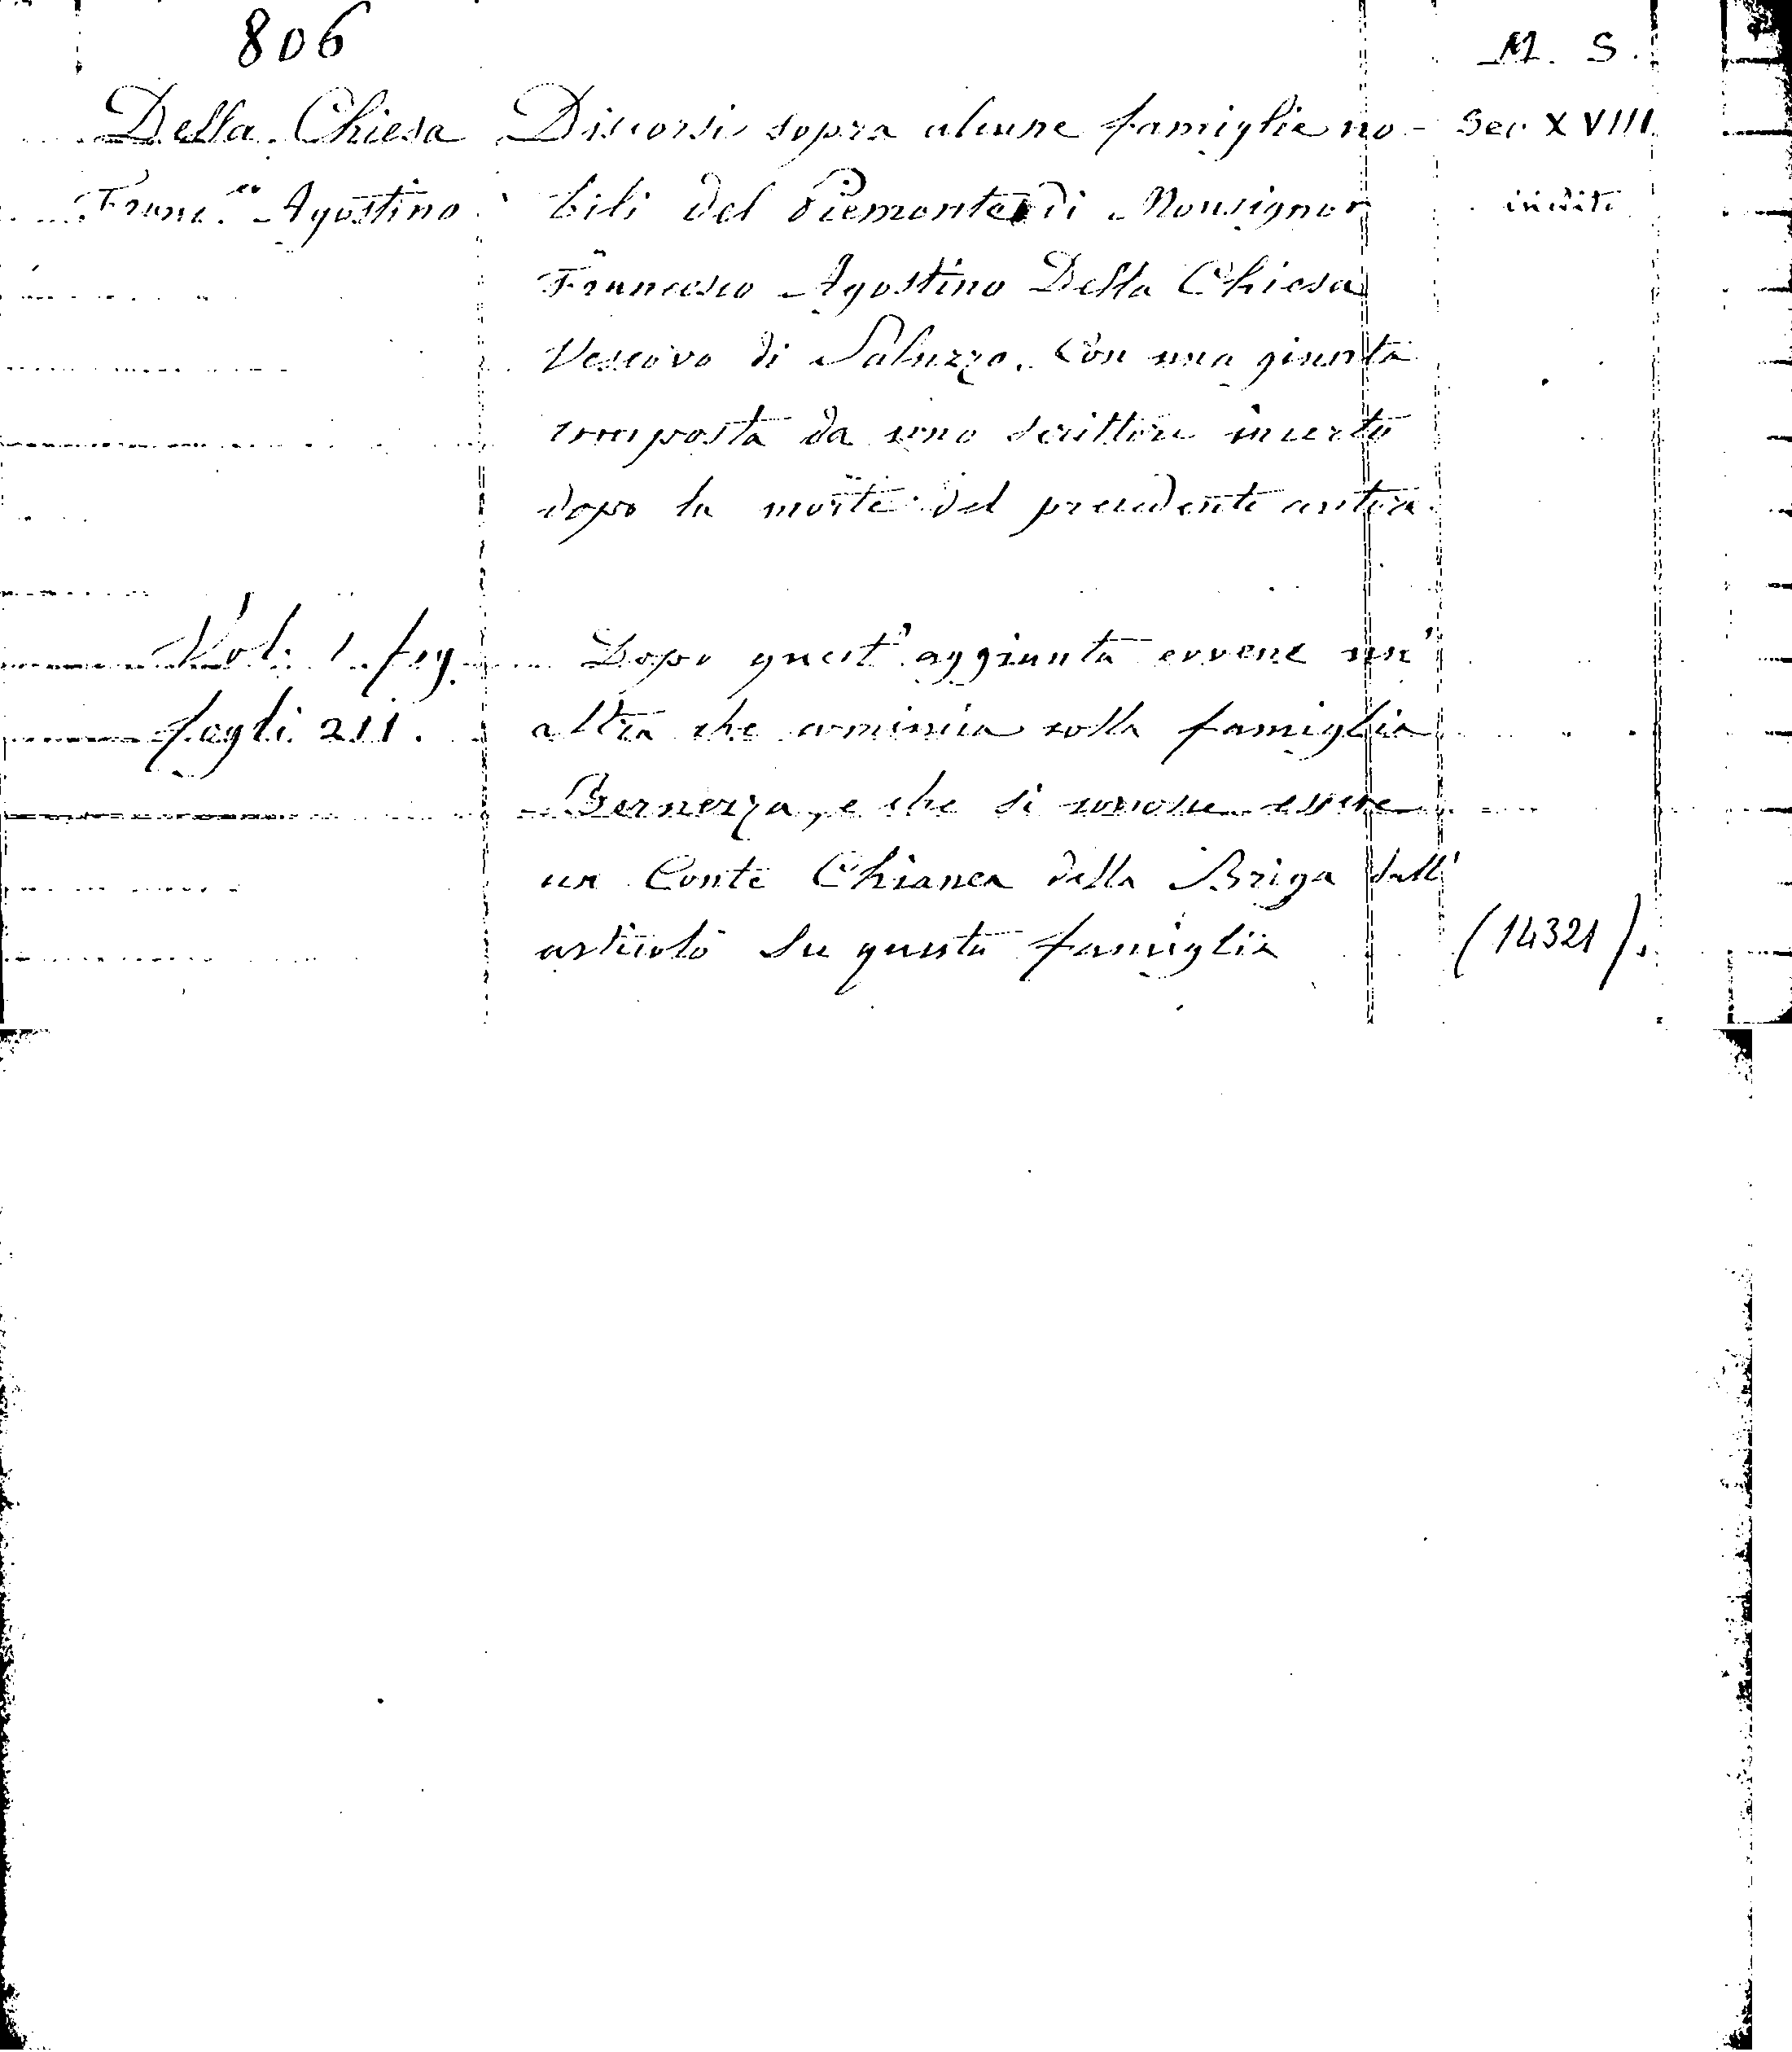 806
M. S.
Della Chiesa Discorsi sopra alcune famiglie no- Sec. XVIII
Franc.co Agostino bili del Piemonte di Monsignor inediti
Francesco Agostino Della Chiesa
Vescovo di Saluzzo. Con una giunta
composta da uno scrittore incerto
dopo la morte del precedente autore.
Vol. 1. fog. Dopo quest'aggiunta evvene un'
fogli 211. altra che comincia colla famiglia
Bernezza, e che si conosce essere
un Conte Chianea della Briga dall'
articolo su questa famiglia (14321).